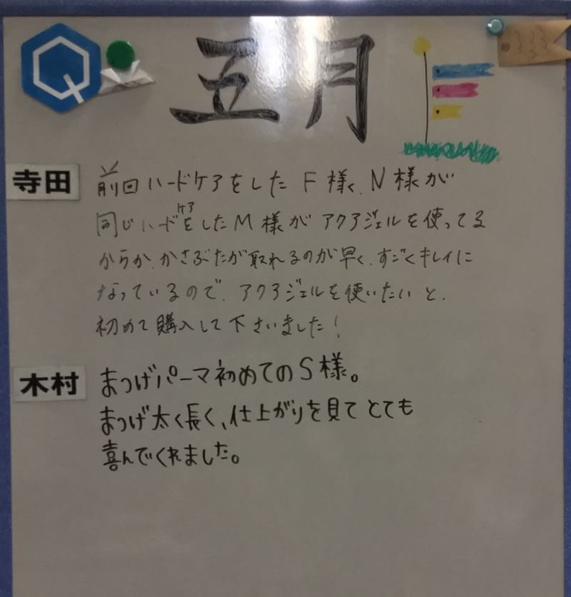 Q
五月
寺田
前回ハードケアをした F様、N様が
同じハードケアをした M様が アクアジェルを使ってる
からか、かさぶたが取れるのが早く、すごくキレイに
なっているので、アクアジェルを使いたいと、
初めて購入して下さいました!
木村
まつげパーマ初めてのS様。
まつげ太く長く、仕上がりを見てとても
喜んでくれました。